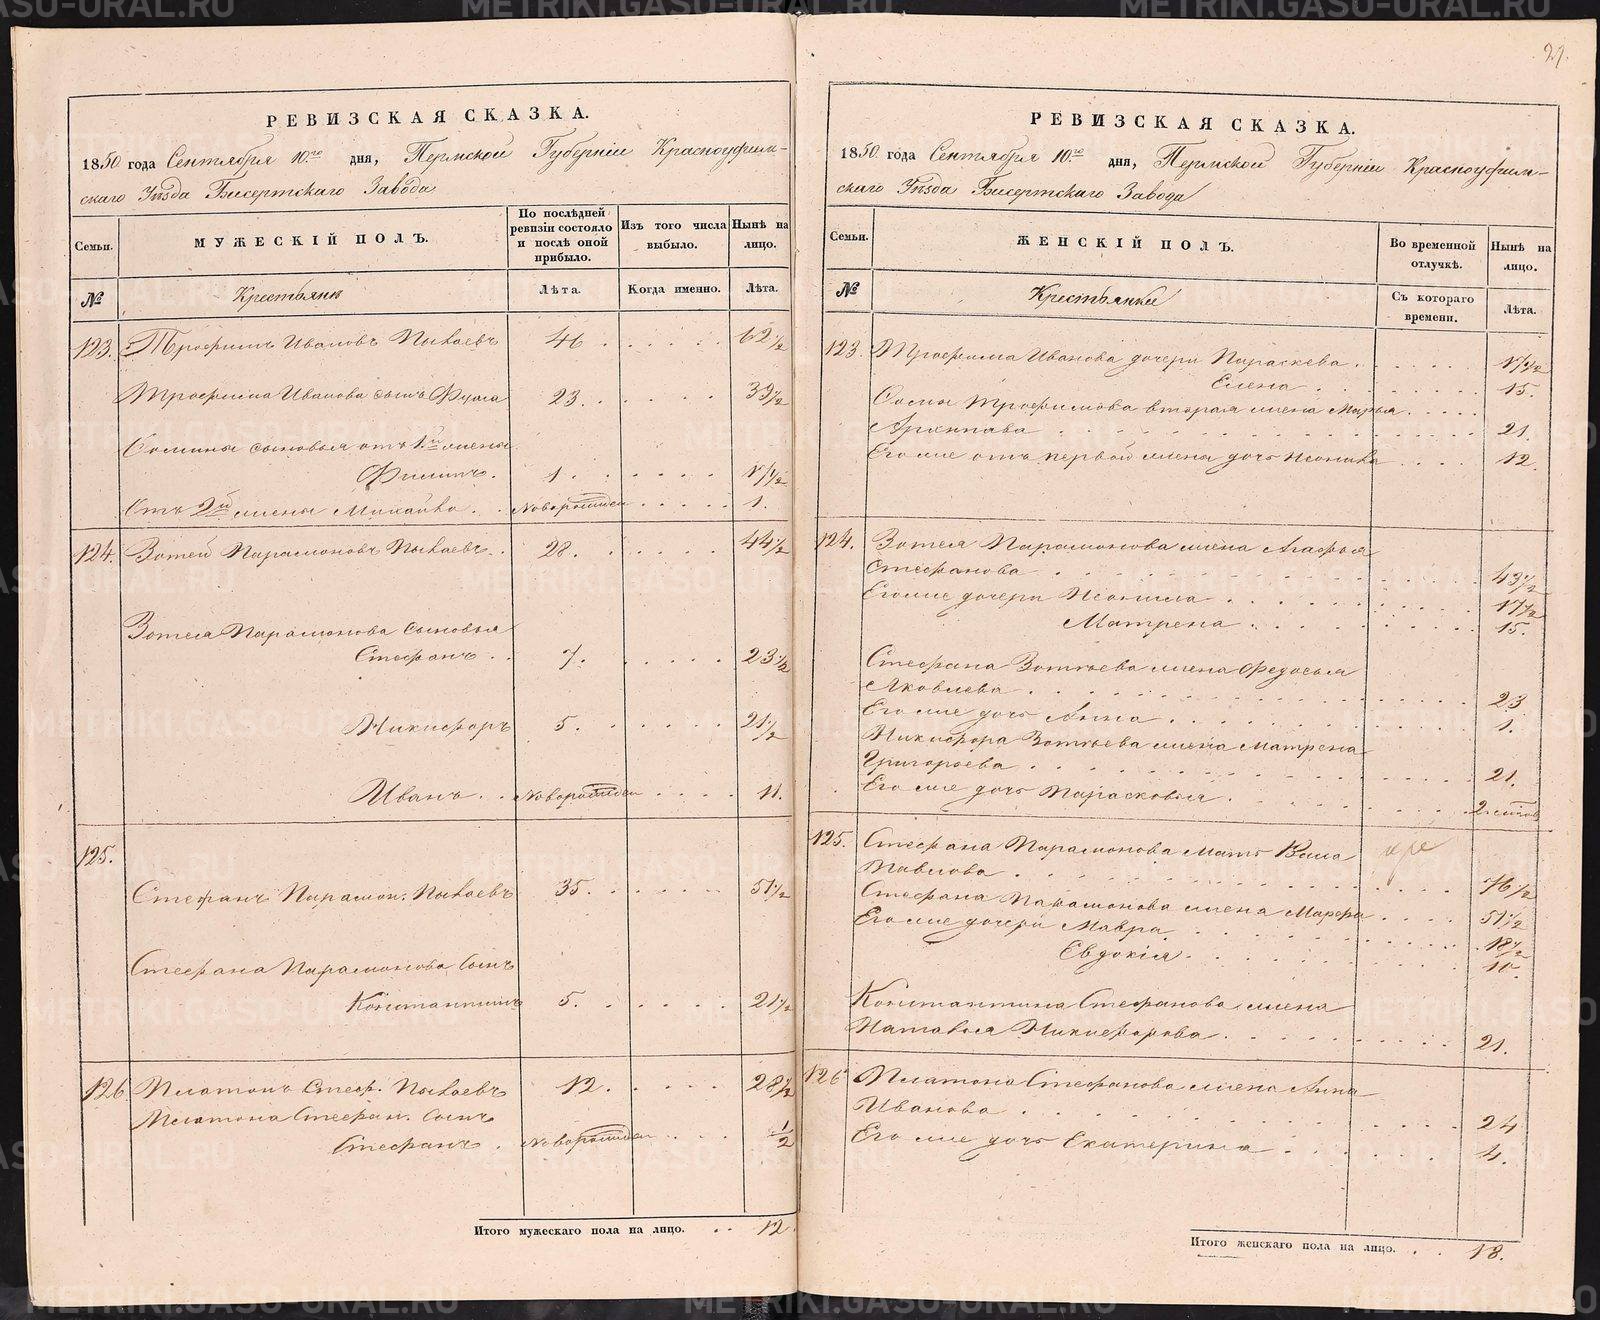 РЕВИЗСКАЯ СКАЗКА.
1850 года Сентября 10го дня, Пермской Губерніи Красноуфим-
скаго Уѣзда Бисертскаго Завода
Семьи.
МУЖЕСКІЙ ПОЛЪ.
По послѣдней ревизіи состояло и послѣ оной прибыло.
Изъ того числа выбыло.
Нынѣ на лицо.
№
Крестьяне
Лѣта.
Когда именно.
Лѣта.
123. Трофимъ Ивановъ Пываевъ 46 62 1/2
Трофима Иванова сынъ Фома 23. 39 1/2
Фомины сыновья отъ 1й жены
Филипъ. 1. 17 1/2
Отъ 2й жены Михайло. Новорожден 1.
124. Зотей Парамоновъ Пываевъ. 28. 44 1/2
Зотея Парамонова сыновья
Стефанъ. 7. 23 1/2
Никифоръ 5. 21 1/2
Иванъ. Новорожден 11.
125.
Стефанъ Парамон. Пываевъ 35. 51 1/2
Стефана Парамонова сынъ
Константинъ 5. 21 1/2
126 Платонъ Стеф. Пываевъ 12. 28 1/2
Платона Стефан. сынъ
Стефанъ. Новорожден 1/2
Итого мужескаго пола на лицо. 12.
29.
РЕВИЗСКАЯ СКАЗКА.
1850 года Сентября 10го дня, Пермской Губерніи Красноуфим-
скаго Уѣзда Бисертскаго Завода
Семьи.
ЖЕНСКІЙ ПОЛЪ.
Во временной отлучкѣ.
Нынѣ на лицо.
№
Крестьянки
Съ котораго времени.
Лѣта.
123. Трофима Иванова дочери Параскева. 17 1/2
Елена 15.
Фомы Трофимова вторая жена Марья
Архипова 21.
Его же отъ первой жены дочь 12.
124. Зотея Парамонова жена Агафья
Стефанова 43 1/2
Его же дочери Неонила 17 1/2
Матрена 15.
Стефана Зотѣева жена Федосья
Яковлева 23
Его же дочь Анна 1.
Никифора Зотѣева жена Матрена
Григорьева 21.
Его же дочь Парасковья. 2
125. Стефана Парамонова мать
Павлова 76 1/2
Стефана Парамонова жена Марфа 51 1/2
Его же дочери Мавра 18 1/2
Евдокія. 10.
Константина Стефанова жена
Наталья Никифорова 21.
126 Платона Стефанова жена Анна
Иванова 24
Его же дочь Екатерина 4.
Итого женскаго пола на лицо. 18.
METRIKI.GASO-URAL.RU